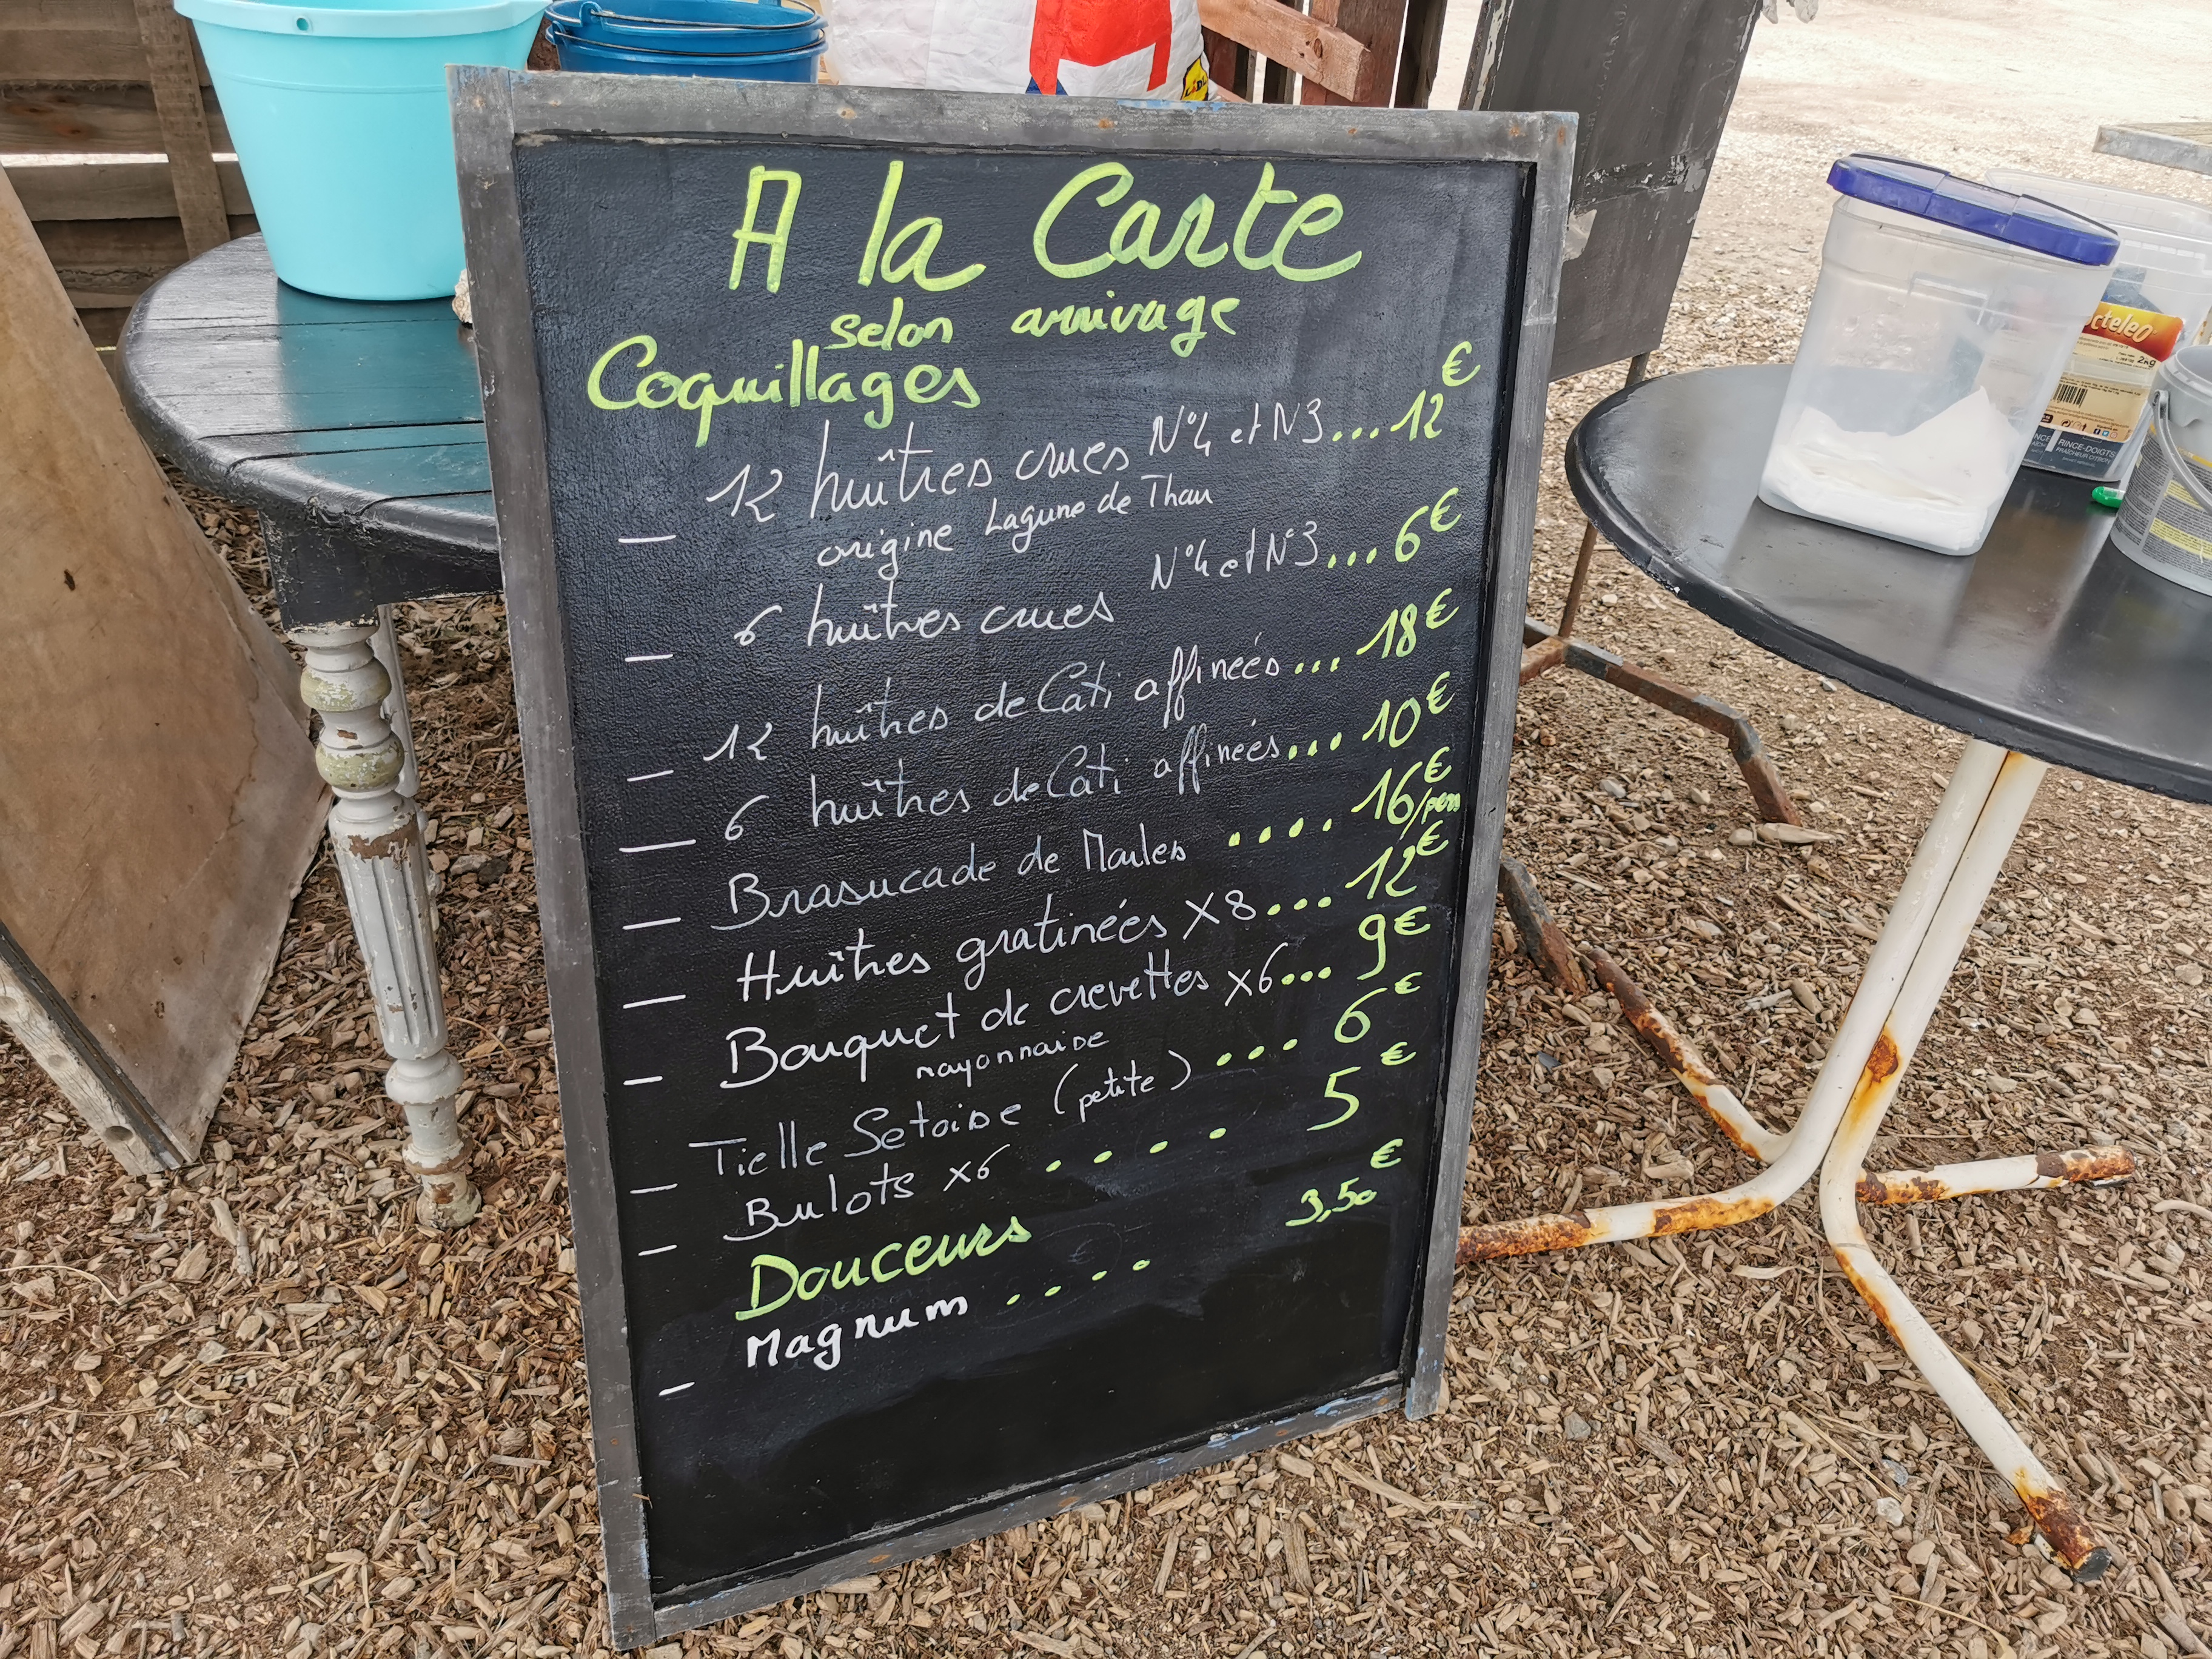 A la Carte
selon arrivage
Coquillages
— 12 huîtres crues N°4 et N3...12€
origine Lagune de Thau
— 6 huîtres crues N°4 et N°3...6€
— 12 huîtres de Cati affineés...18€
— 6 huîtres de Cati affineés...10€
— Brasucade de Moules ....16€/pers
— Huîtres gratinéés X8...12€
— Bouquet de crevettes x6...9€
mayonnaise
— Tielle Setoise (petite) ...6€
— Bulots x6 ....5€
Douceurs
— Magnum ....3,50€
LIDL
cteleo
2KG
RINCE-DOIGTS
FRAÎCHEUR CITRON